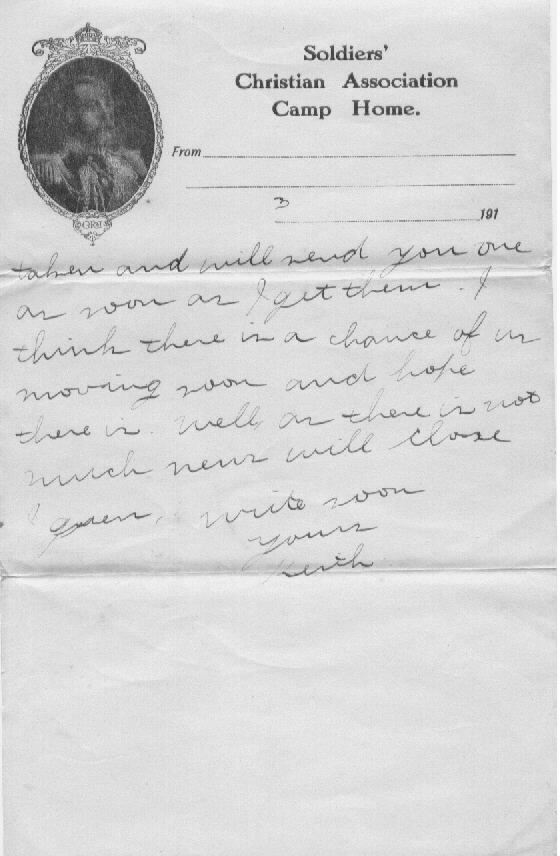 Soldiers'
Christian Association
Camp Home.
From
3
191
GRI
taken and will send you one
as soon as I get them. I
think there is a chance of us
moving soon and hope
there is. Well, as there is not
much news will close
I guess, write soon
Yours
Keith